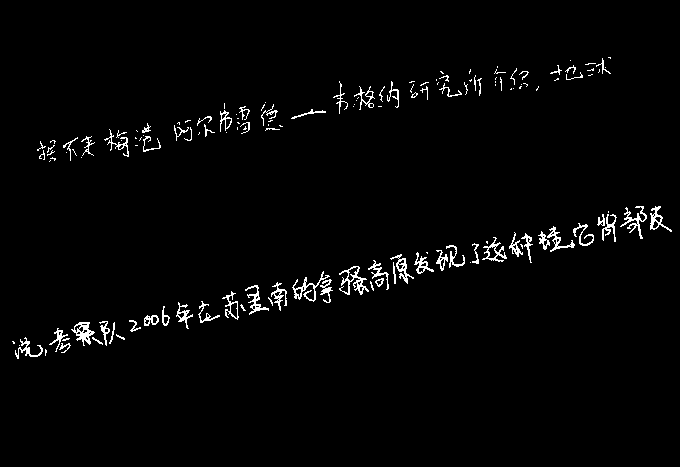 据不来梅港阿尔弗雷德一韦格纳研究所介绍,地球
说,考察队2006年在苏里南的拿骚高原发现了这种蛙,它背部皮